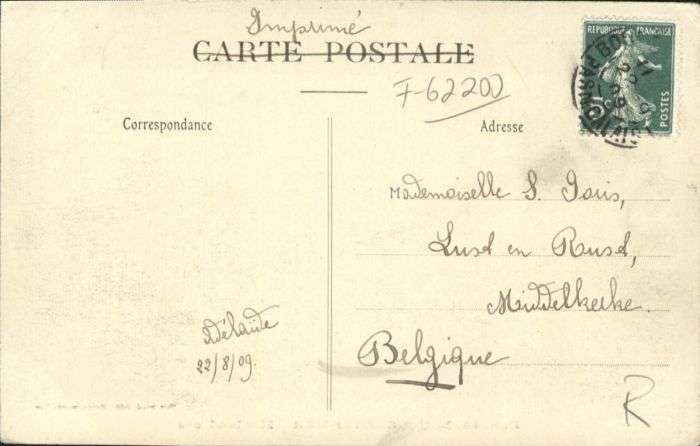 Imprimé
CARTE POSTALE
F-62200
Correspondance
Adresse
REPUBLIQUE FRANÇAISE
POSTES
Mademoiselle S. Joris,
Lust en Rust,
Middelkerke.
Belgique
Adélaïde
22/8/09.
R